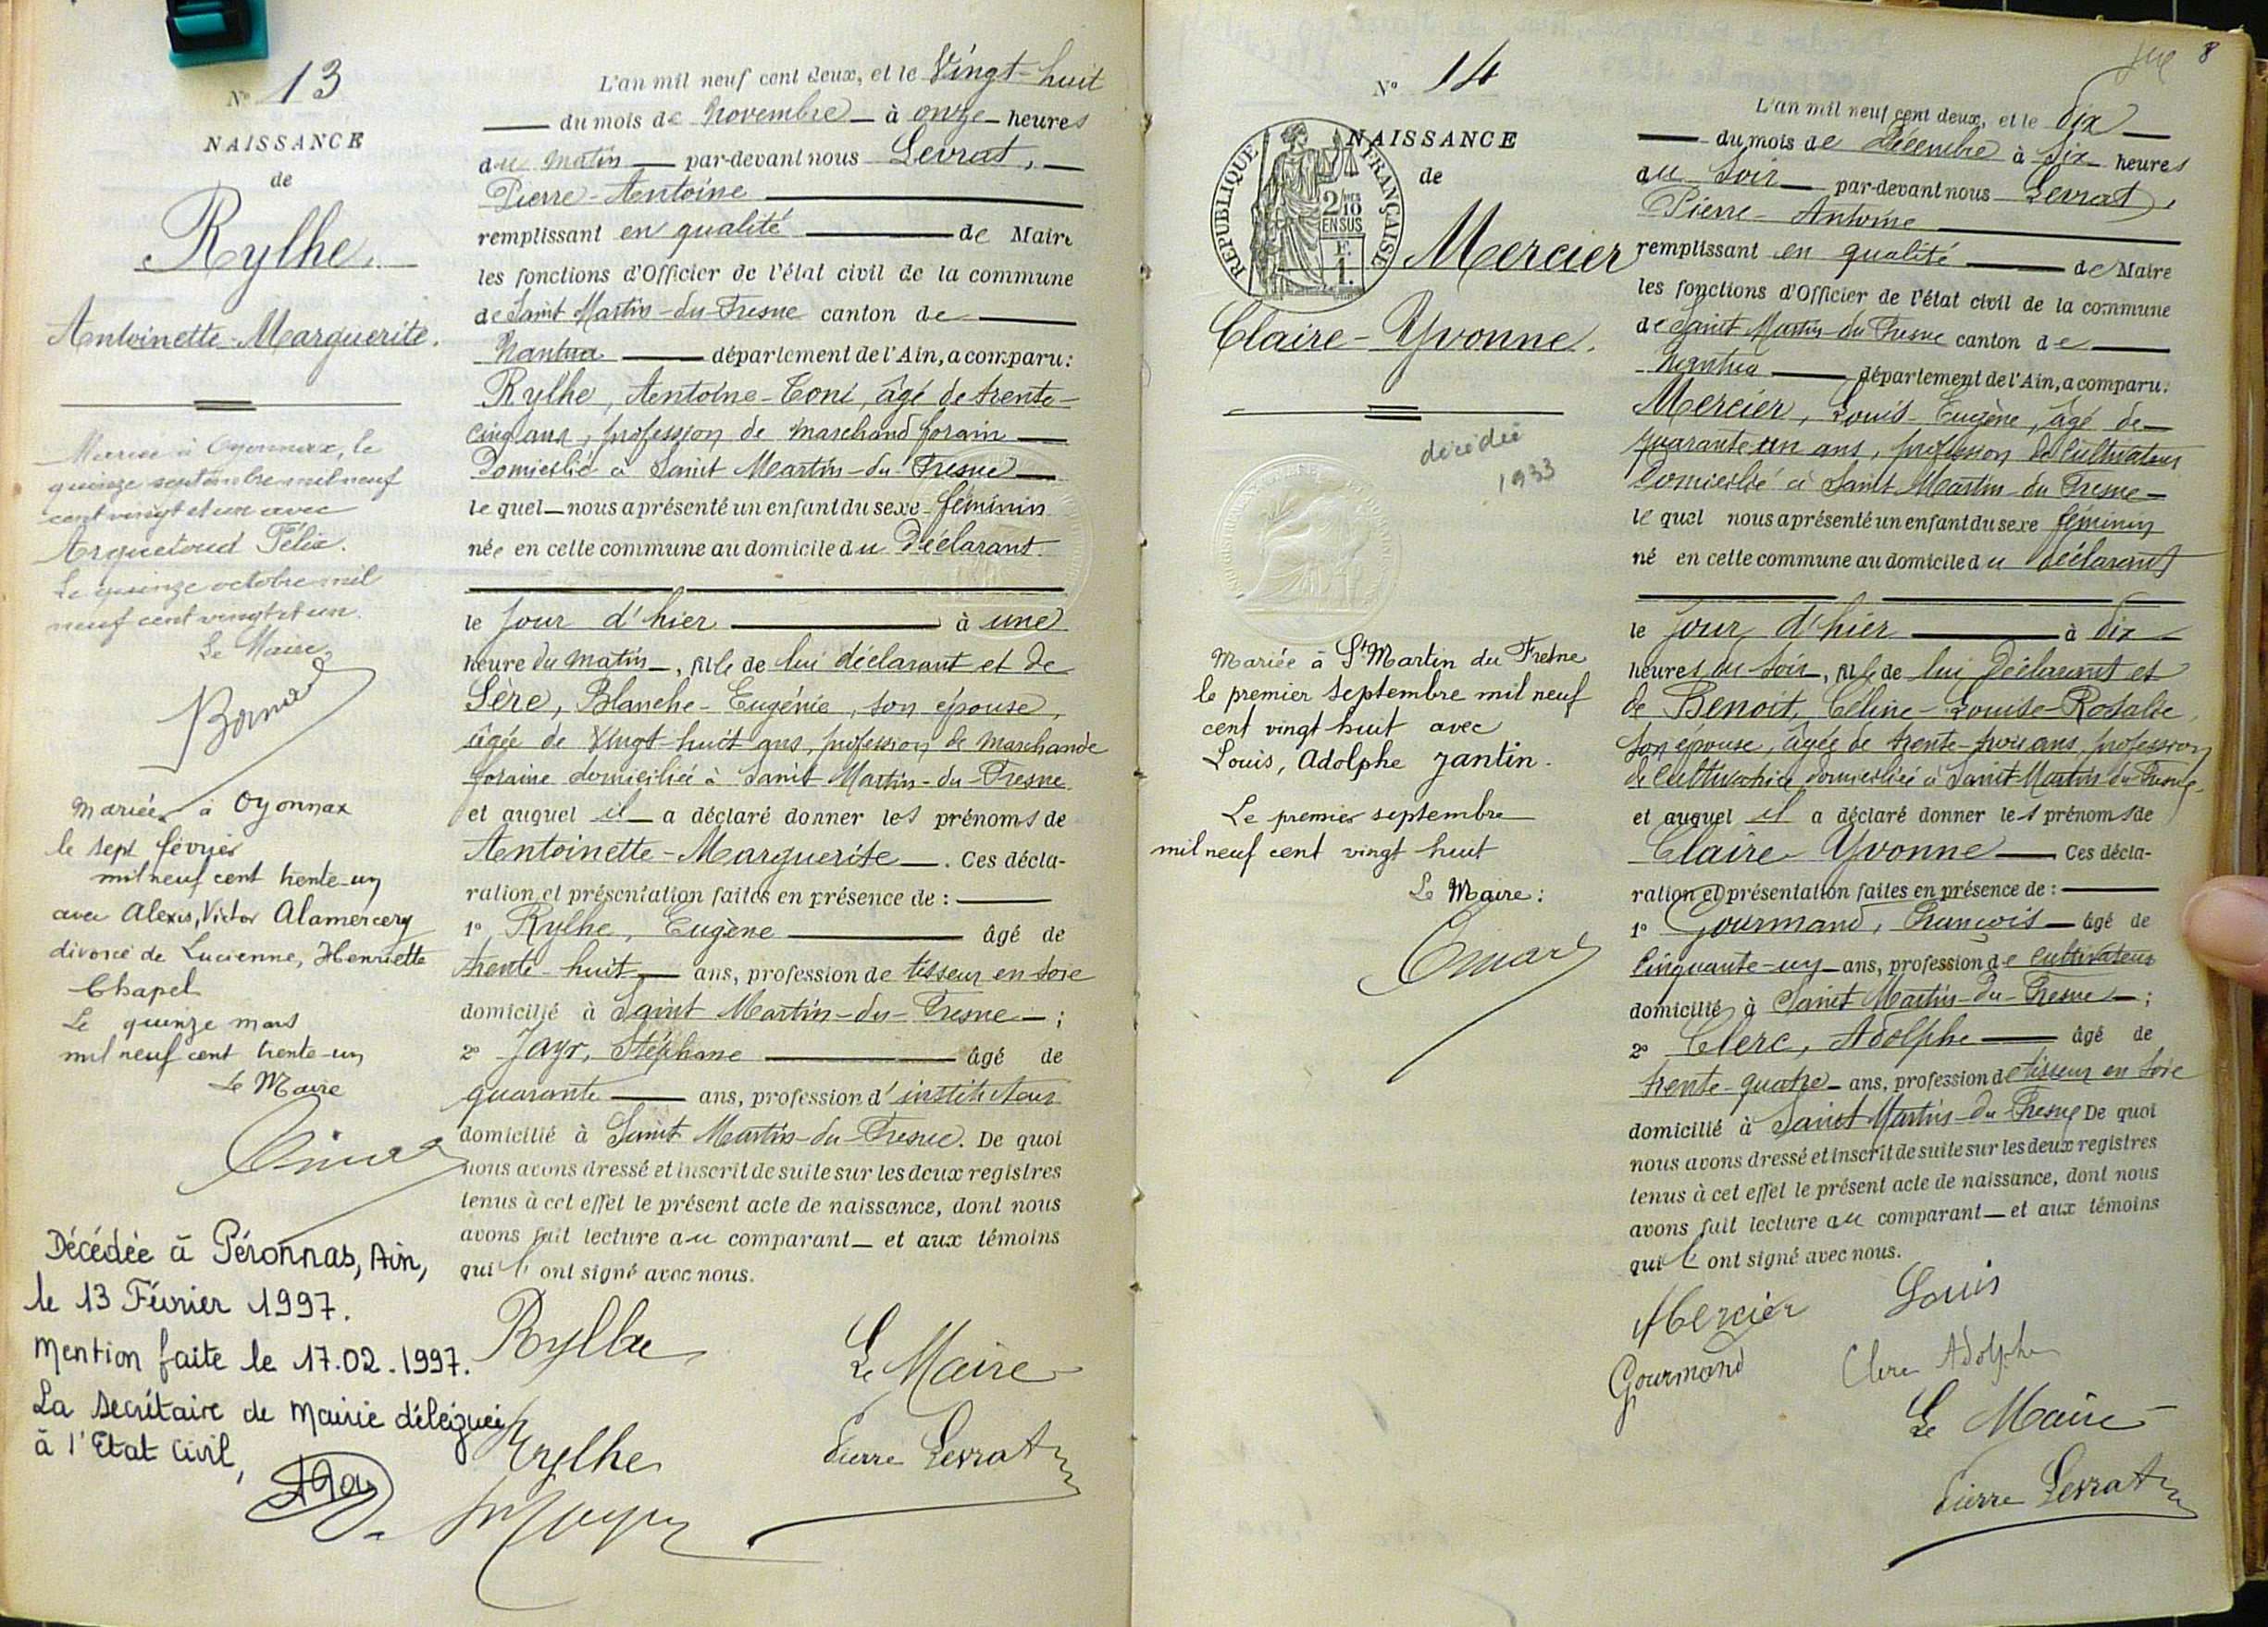 N° 13
NAISSANCE
de
Rylhe.
Antoinette-Marguerite.
Mariée à Oyonnax, le
quinze septembre mil neuf
cent vingt et un avec
Félix.
Le quinze octobre mil
neuf cent vingt et un.
Le Maire,
Mariée à Oyonnax
le sept février
mil neuf cent trente-un
avec Alexis, Victor Alamercery
divorcé de Lucienne, Henriette
Chapel
Le quinze mars
mil neuf cent trente-un
Le Maire
Décédée à Péronnas, Ain,
le 13 Février 1997.
Mention faite le 17.02.1997.
La secrétaire de Mairie déléguée
à l'Etat Civil,
L'an mil neuf cent deux, et le Vingt-huit
du mois de Novembre à onze heures
du matin par-devant nous Levrat,
Pierre-Antoine
remplissant en qualité de Maire
les fonctions d'Officier de l'état civil de la commune
de Saint Martin-du-Fresne canton de
Nantua département de l'Ain, a comparu:
Rylhe, Antoine-Toni, âgé de trente-
cinq ans, profession de marchand forain
Domicilié à Saint Martin-du-Fresne
le quel nous a présenté un enfant du sexe féminin
née en cette commune au domicile du Déclarant.
le jour d'hier à une
heure du matin, fille de lui déclarant et de
Sère, Blanche-Eugénie, son épouse,
âgée de Vingt-huit ans, profession de marchande
foraine domiciliée à Saint-Martin-du-Fresne
et auquel il a déclaré donner les prénoms de
Antoinette-Marguerite. Ces décla-
ration et présentation faites en présence de :
1° Rylhe, Eugène âgé de
trente-huit ans, profession de tisseur en soie
domicilié à Saint Martin-du-Fresne ;
2° Jayr, Stéphane âgé de
quarante ans, profession d'instituteur
domicilié à Saint Martin-du-Fresne. De quoi
nous avons dressé et inscrit de suite sur les deux registres
tenus à cet effet le présent acte de naissance, dont nous
avons fait lecture au comparant et aux témoins
qui l' ont signé avec nous.
Rylhe
Le Maire
Rylhe
Pierre Levrat
8
N° 14
NAISSANCE
de
REPUBLIQUE FRANÇAISE
2/10 EN SUS
Mercier
Claire-Yvonne.
décédée
1933
Mariée à St Martin du Fresne
le premier septembre mil neuf
cent vingt huit avec
Louis, Adolphe Jantin.
Le premier septembre
mil neuf cent vingt huit
Le Maire :
L'an mil neuf cent deux, et le dix
du mois de Décembre à six heures
du soir par-devant nous Levrat,
Pierre-Antoine
remplissant en qualité de Maire
les fonctions d'Officier de l'état civil de la commune
de Saint Martin-du-Fresne canton de
Nantua département de l'Ain, a comparu:
Mercier, Louis-Eugène, âgé de
quarante-un ans, profession de cultivateur
Domicilié à Saint Martin-du-Fresne
le quel nous a présenté un enfant du sexe féminin
né en cette commune au domicile du déclarant
le jour d'hier à dix
heures du soir, fille de lui déclarant et
de Benoit, Céline-Louise-Rosalie,
son épouse, âgée de trente-trois ans, profession
de cultivatrice domiciliée à Saint Martin-du-Fresne
et auquel il a déclaré donner les prénoms de
Claire Yvonne Ces décla-
ration et présentation faites en présence de :
1° Gourmand, François âgé de
Cinquante-un ans, profession de cultivateur
domicilié à Saint Martin-du-Fresne ;
2° Clerc, Adolphe âgé de
trente-quatre ans, profession de tisseur en soie
domicilié à Saint Martin-du-Fresne De quoi
nous avons dressé et inscrit de suite sur les deux registres
tenus à cet effet le présent acte de naissance, dont nous
avons fait lecture au comparant et aux témoins
qui l' ont signé avec nous.
Mercier Louis
Gourmand Clerc Adolphe
Le Maire
Pierre Levrat